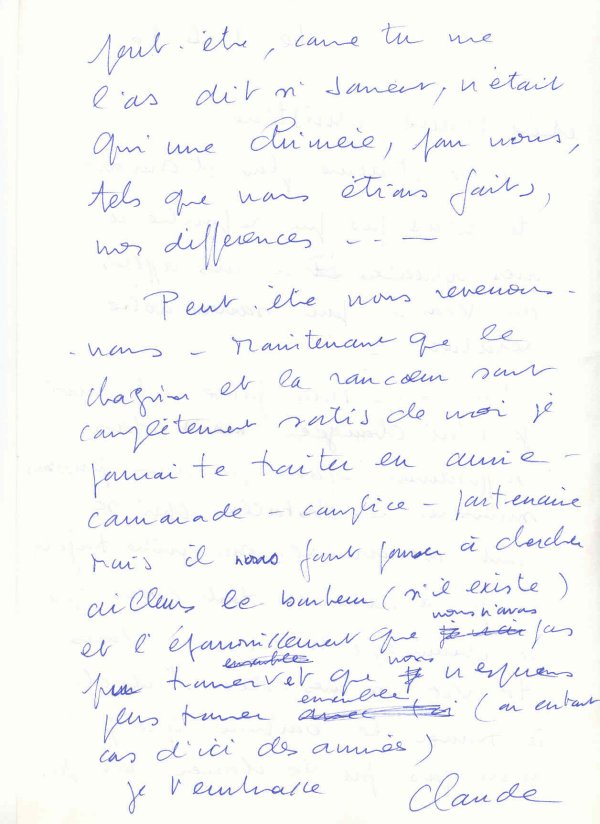 peut-être, comme tu me
l'as dit si souvent, n'était
qu'une chimère, pour nous,
tels que nous étions faits,
nos differences - - -
Peut-être nous reverrons-
- nous - Maintenant que le
chagrin et la rancoeur sont
complètement sortis de moi je
pourrai te traiter en amie -
camarade - complice - partenaire
Mais il nous faut penser à chercher
ailleurs le bonheur (s'il existe)
et l'épanouissement que nous n'avons pas
pu trouver ensemble et que nous n'espérons
plus trouver ensemble (en tout
cas d'ici des années)
je t'embrasse Claude